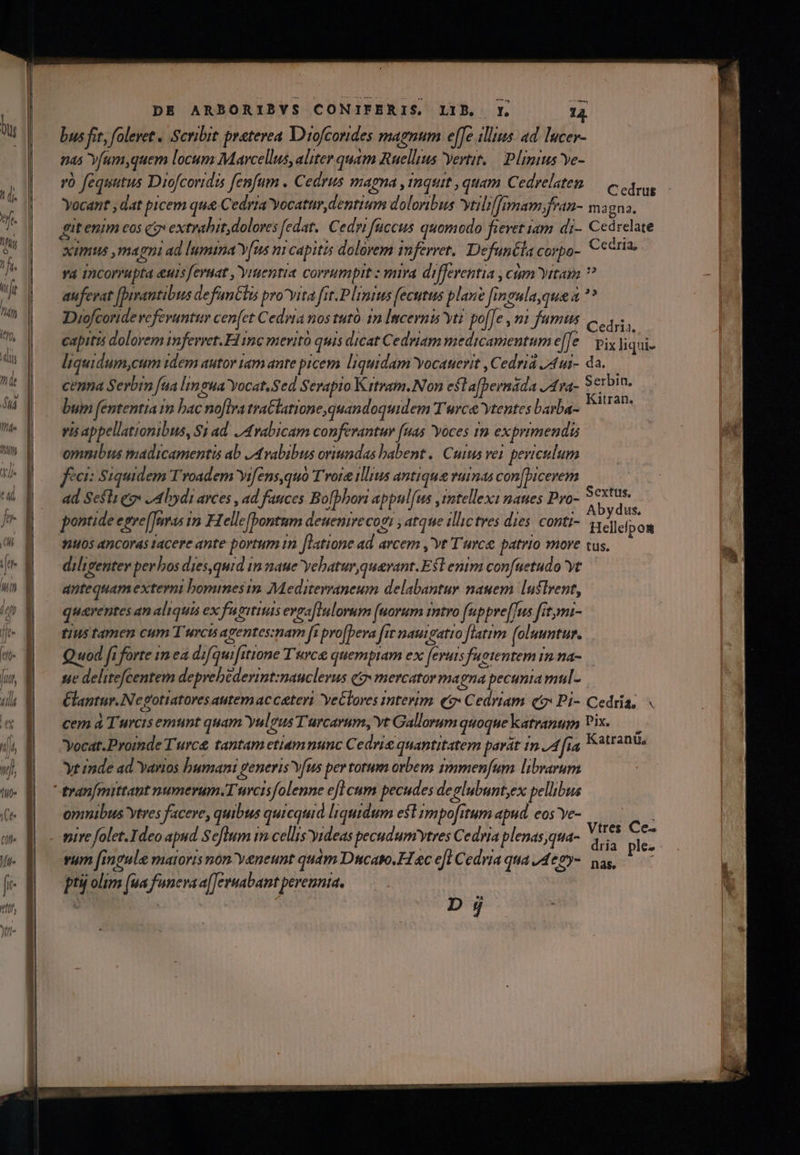 DE ARBORIBVS CONIFERIS. LIB. I. 14
bus fit, soleret. Scribit præterea Dioscorides magnum esse illius ad lucer-
nas vsum, quem locum Marcellus, aliter quàm Ruellius vertit. Plinius ve-
rò sequutus Dioscoridis sensum. Cedrus magna, inquit, quam Cedrelaten
vocant, dat picem quæ Cedria vocatur, dentium doloribus vtilissimam, fran-
git enim eos & extrahit, dolores sedat. Cedri succus quomodo fieret iam di-
ximus, magni ad lumina vsus ni capitis dolorem inferret. Defuncta corpo-
ra incorrupta æuis seruat, viuentia corrumpit: mira differentia, cùm vitam
auferat spirantibus defunctis pro vita sit. Plinius secutus planè singula, quæ à
Dioscoride referuntur censet Cedria nos tutò in lucernis vti posse, ni fumus
capitis dolorem inferret. Hinc meritò quis dicat Cedriam medicamentum esse
liquidum, cum idem autor iam ante picem liquidam vocauerit, Cedriã Aui-
cenna Serbin sua lingua vocat, Sed Serapio Kitram. Non est aspernãda Ara-
bum sententia in hac nostra tractatione, quandoquidem Turcæ vtentes barba-
ris appellationibus, Si ad Arabicam conferantur suas voces in exprimendis
omnibus madicamentis ab Arabibus oriundas habent. Cuius rei periculum
feci: Siquidem Troadem visens, quò Troiæ illius antiquæ ruinas conspicerem
ad Sesti & Abydi arces, ad fauces Bosphori appulsus, intellexi naues Pro-
pontide egressuras in Hellespontum deuenire cogi, atque illic tres dies conti-
nuos ancoras iacere ante portum in statione ad arcem, vt Turcæ patrio more
diligenter per hos dies, quid in naue vehatur, quærant. Est enim consuetudo vt
antequam externi homines in Mediterraneum delabantur nauem lustrent,
quærentes an aliquis ex fugitiuis ergastulorum suorum intro suppressus sit, mi-
tius tamen cum Turcis agentes: nam si prospera sit nauigatio statim soluuntur.
Quod si forte in ea disquisitione Turcæ quempiam ex seruis fugientem in na-
ue delitescentem deprehēderint: nauclerus & mercator magna pecunia mul-
ctantur. Negotiatores autem ac cæteri vectores interim & Cedriam & Pi-
cem à Turcis emunt quam vulgus Turcarum, vt Gallorum quoque katranum
vocat. Proinde Turcæ tantam etiam nunc Cedriæ quantitatem parãt in Asia
vt inde ad varios humani generis vsus per totum orbem immensum librarum
transmittant numerum. Turcis solenne est cum pecudes deglubunt, ex pellibus
omnibus vtres facere, quibus quicquid liquidum est impositum apud eos ve-
nire solet. Ideo apud Sestum in cellis videas pecudum vtres Cedria plenas, qua-
rum singulæ maioris non væneunt quàm Ducato. Hæc est Cedria qua Ægy-
ptij olim sua funera asseruabant perennia.
D ij
Cedrus
magna.
Cedrelate
Cedria.
”
”
Cedria.
Pix liqui-
da.
Serbin.
Kitran.
Sextus.
Abydus.
Hellespon
tus.
Cedria.
Pix.
Katranū.
Vtres Ce-
dria ple-
nas.